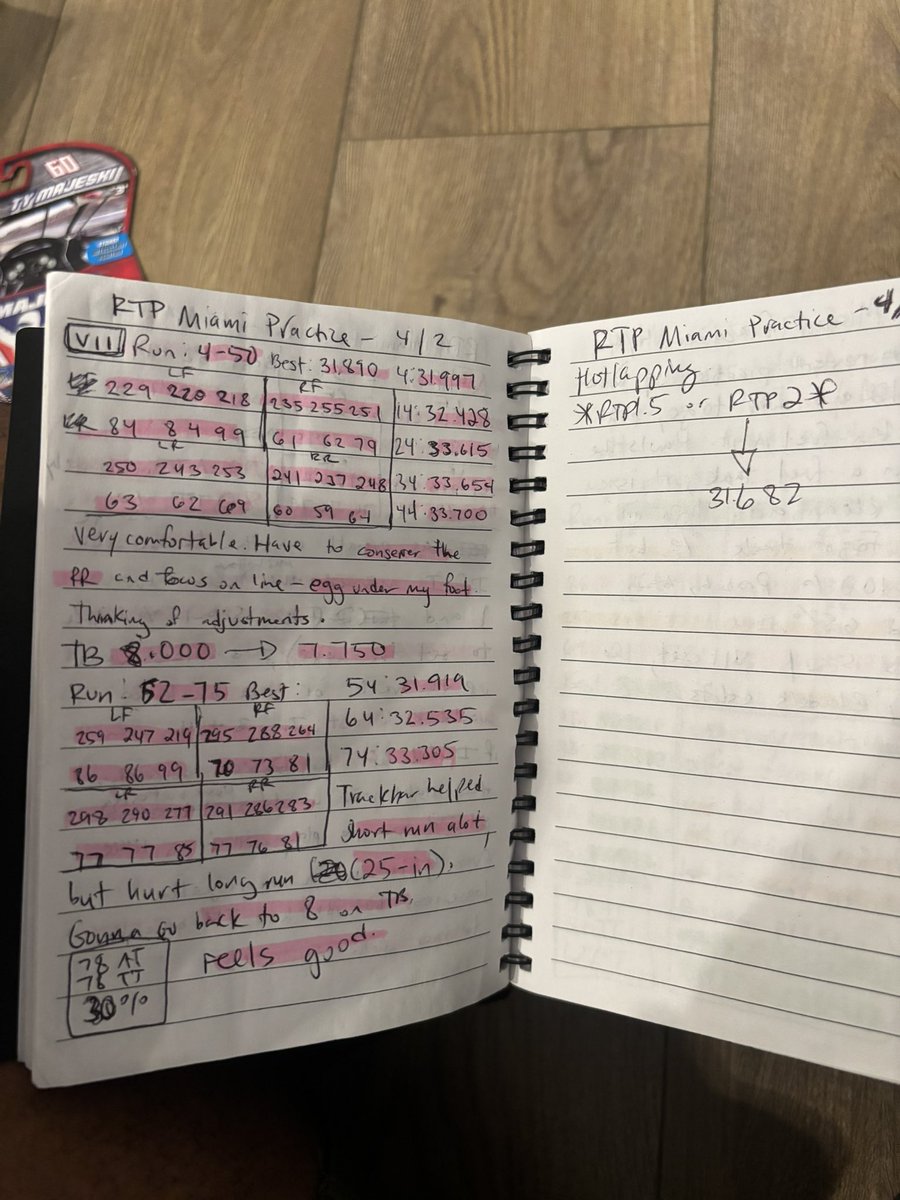 60
TY MAJESKI
MAJ
RTP Miami Practice - 4/2
VII Run: 4-50 Best: 31.890 4:31.997
LF RF
229 220 218 235 255 251 14:32.428
84 84 99 61 62 79 24:33.615
LR RR
250 243 253 241 237 248 34:33.654
63 62 69 60 59 64 44:33.700
very comfortable. Have to conserve the
RR and focus on line - egg under my foot.
Thinking of adjustments.
TB 8.000 → 7.750
Run: 52-75 Best: 54:31.919
LF RF
259 247 219 295 288 264 64:32.535
86 86 99 70 73 81 74:33.305
LR RR
298 290 277 291 286 283 Trackbar helped
77 77 85 77 76 81 short run alot,
but hurt long run (25-in).
Gonna go back to 8 on TB.
Feels good.
78 AT
78 TT
30%
RTP Miami Practice - 4/
Hotlapping
*RTP1.5 or RTP2*
31.682